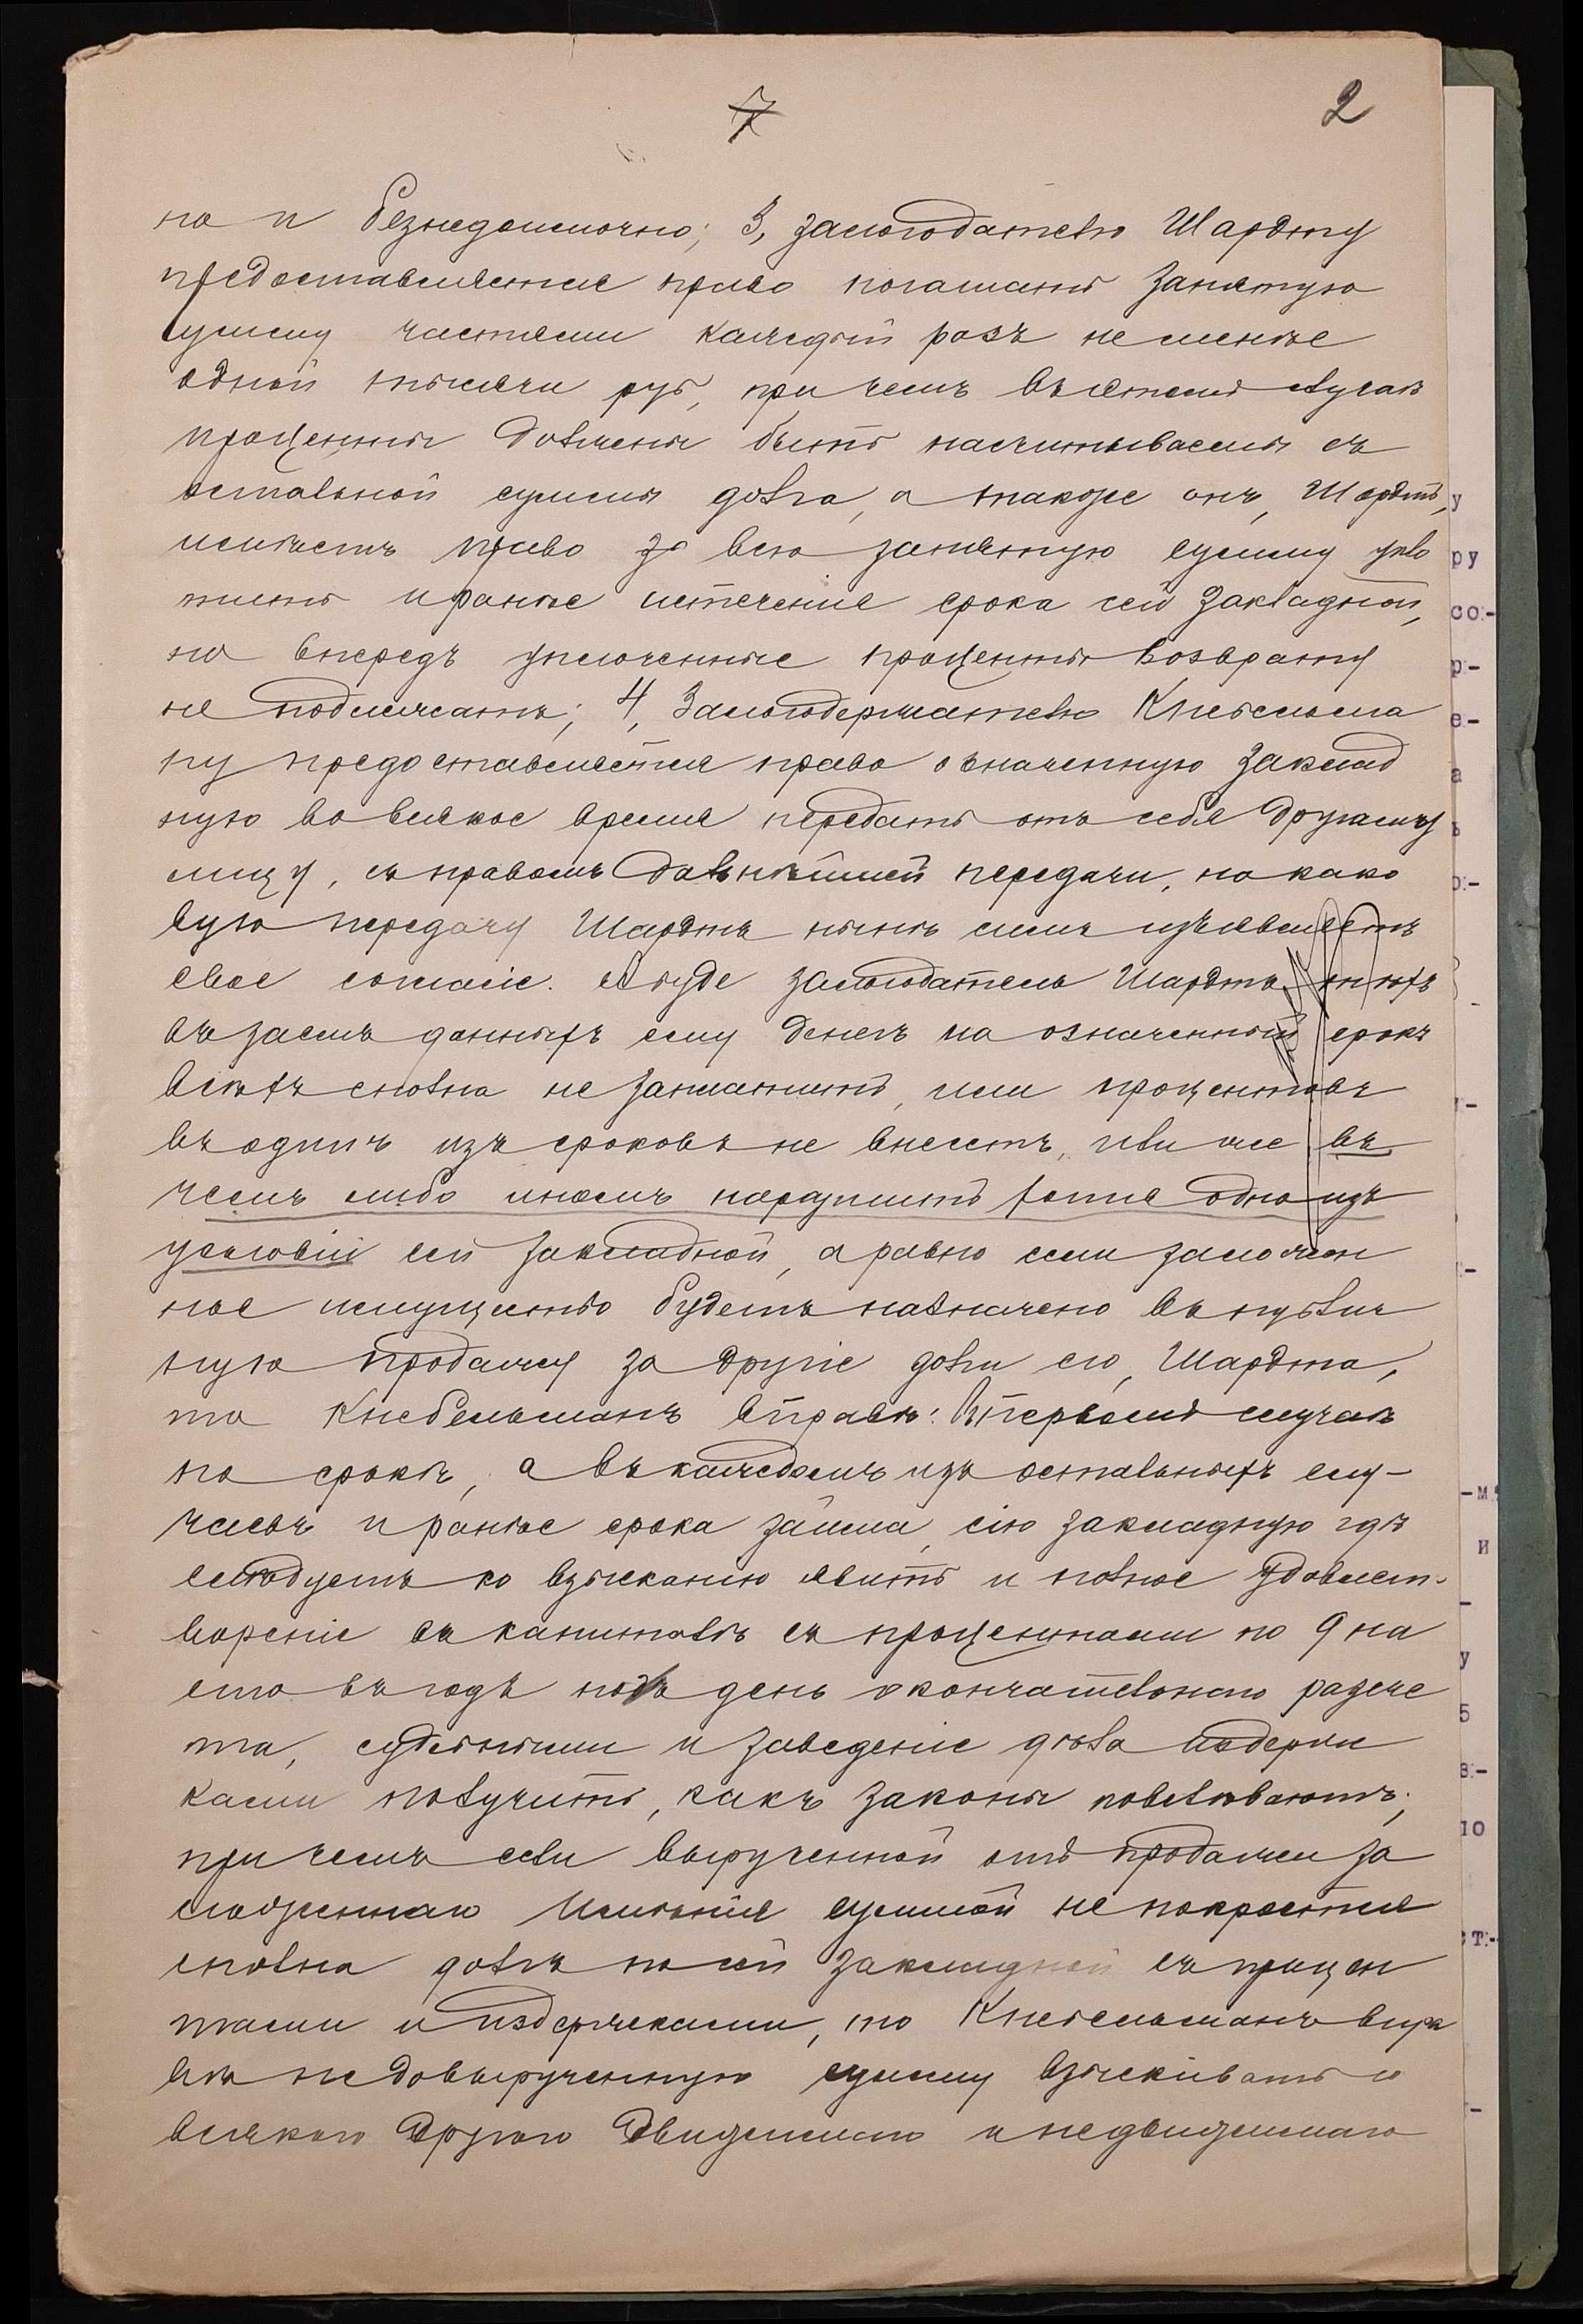 7
2
но и безнедоимочно; 3, залогодателю Шардту
предоставляется право погашать занятую
сумму частями каждый разъ не менѣе
одной тысячи руб, при чемъ въ этомъ случаѣ
проценты должны быть насчитываемы съ
остальной суммы долга, а также онъ, Шардтъ,
имѣетъ право и всю занятую сумму упла
тить и ранѣе истеченія срока сей закладной,
но впередъ уплоченные проценты возврату
не подлежатъ; 4, Залогодержателю Кнебельма
ну предоставляется право означенную заклад
ную во всякое время передать отъ себя другому
лицу, съ правомъ дальнѣйшей передачи, на како
вую передачу Шардтъ нынѣ симъ изъявляетъ
свое согласіе. А буде залогодатель Шардтъ
въ заемъ данныхъ ему денегъ на означенный срокъ
всѣхъ сполна не заплатитъ, или процентовъ
въ одинъ изъ сроковъ не внесетъ, или же въ
чемъ либо иномъ нарушитъ хотя одно изъ
условій сей закладной, а равно если заложен
ное имущество будетъ назначено въ публич
ную продажу за другіе долги его, Шардта,
то Кнебельманъ вправѣ: въ первомъ случаѣ
по срокѣ, а въ каждомъ изъ остальныхъ слу-
чаевъ и ранѣе срока займа, сію закладную гдѣ
слѣдуетъ ко взысканію явить и полное удовлет-
вореніе въ капиталѣ съ процентами по 9 на
сто въ годъ по день окончательнаго разсче
та, судебными и за веденіе дѣла издерж
ками получить, какъ законы повелѣваютъ;
при чемъ если вырученной отъ продажи за
ложеннаго имѣнія суммой не покроется
сполна долгъ по сей закладной съ процен
тами и издержками, то Кнебельманъ впра
вѣ недовырученную сумму взыскивать с
всякаго другого движимаго и недвижимаго
у
ру
со:-
р:-
е-
а
ъ
о:-
-м
и
у
5
в:-
10
т:-